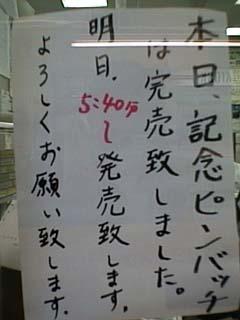 本日、記念ピンバッチ
は完売致しました。
明日、5:40分〜発売致します。
よろしくお願い致します。